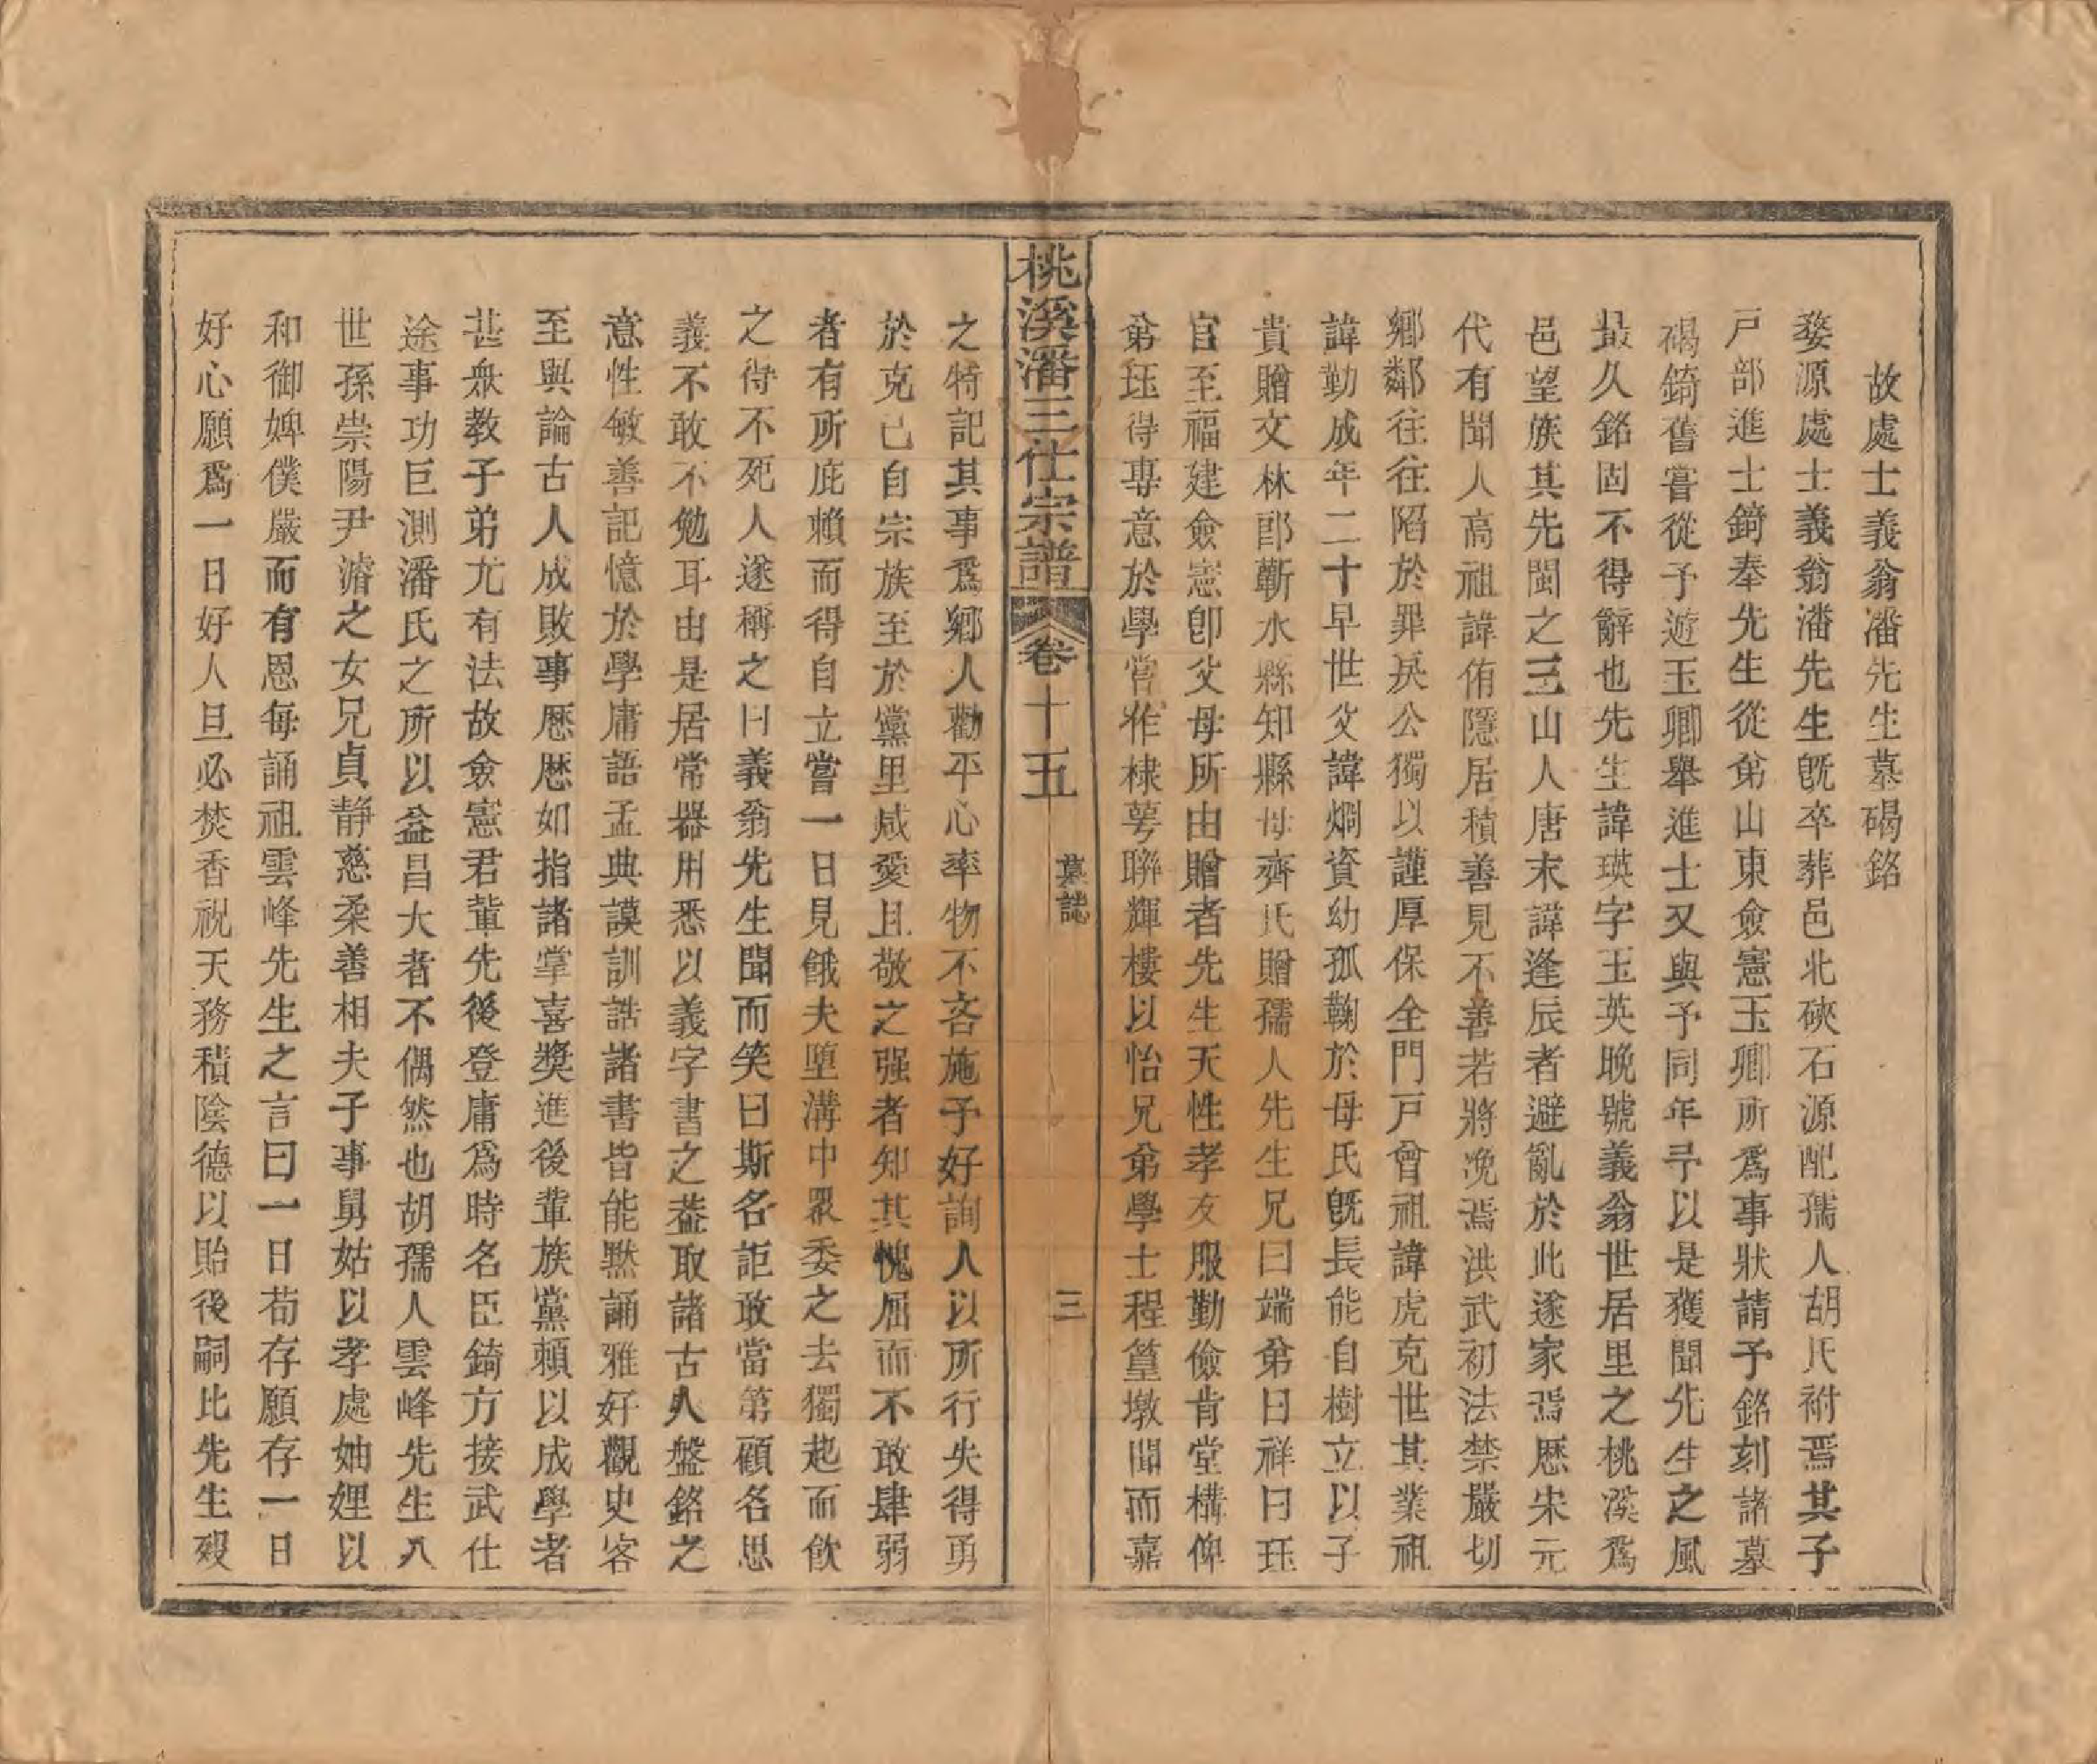 故處士義翁潘先生墓碣銘
婺源處士義翁潘先生旣卒葬邑北硤石源配孺人胡氏祔焉其子
戸部進士錡奉先生從弟山東僉憲玉卿所爲事狀請予銘刻諸墓
碣錡舊嘗從予遊玉卿舉進士又與予同年予以是獲聞先生之風
最久銘固不得辭也先生諱瑛字玉英晚號義翁世居里之桃溪爲
邑望族其先閩之三山人唐末諱逢辰者避亂於此遂家焉歷宋元
代有聞人高祖諱侑隱居積善見不善若將浼焉洪武初法禁嚴切
鄉鄰往往䧟於罪戾公獨以謹厚保全門戸曾祖諱虎克世其業祖
諱勤成年二十早世父諱烱資幼孤鞠於母氏旣長能自樹立以子
貴贈文林郎蘄水縣知縣母齊氏贈孺人先生兄曰端弟曰祥曰珏
官至福建僉憲卽父母所由贈者先生天性孝友服勤儉肯堂構俾
弟珏得專意於學嘗作棣萼聯輝樓以怡兄弟學士程篁墩聞而嘉
桃溪潘三仕宗譜 卷十五 墓誌 三
之特記其事爲鄉人勸平心率物不吝施予好詢人以所行失得勇
於克己自宗族至於黨里咸愛且敬之强者知其愧屈而不敢肆弱
者有所庇賴而得自立嘗一日見餓夫墮溝中衆委之去獨起而飮
之得不死人遂稱之曰義翁先生聞而笑曰斯名詎敢當第顧名思
義不敢不勉耳由是居常器用悉以義字書之葢取諸古人盤銘之
意性敏善記憶於學庸語孟典謨訓誥諸書皆能黙誦雅好觀史客
至與論古人成敗事歷歷如指諸掌喜奬進後輩族黨賴以成學者
甚衆教子弟尤有法故僉憲君輩先後登庸爲時名臣錡方接武仕
途事功巨測潘氏之所以益昌大者不偶然也胡孺人雲峰先生八
世孫崇陽尹濬之女兄貞静慈柔善相夫子事舅姑以孝處妯娌以
和御婢僕嚴而有恩每誦祖雲峰先生之言曰一日苟存願存一日
好心願爲一日好人旦必焚香祝天務積陰德以貽後嗣比先生歿